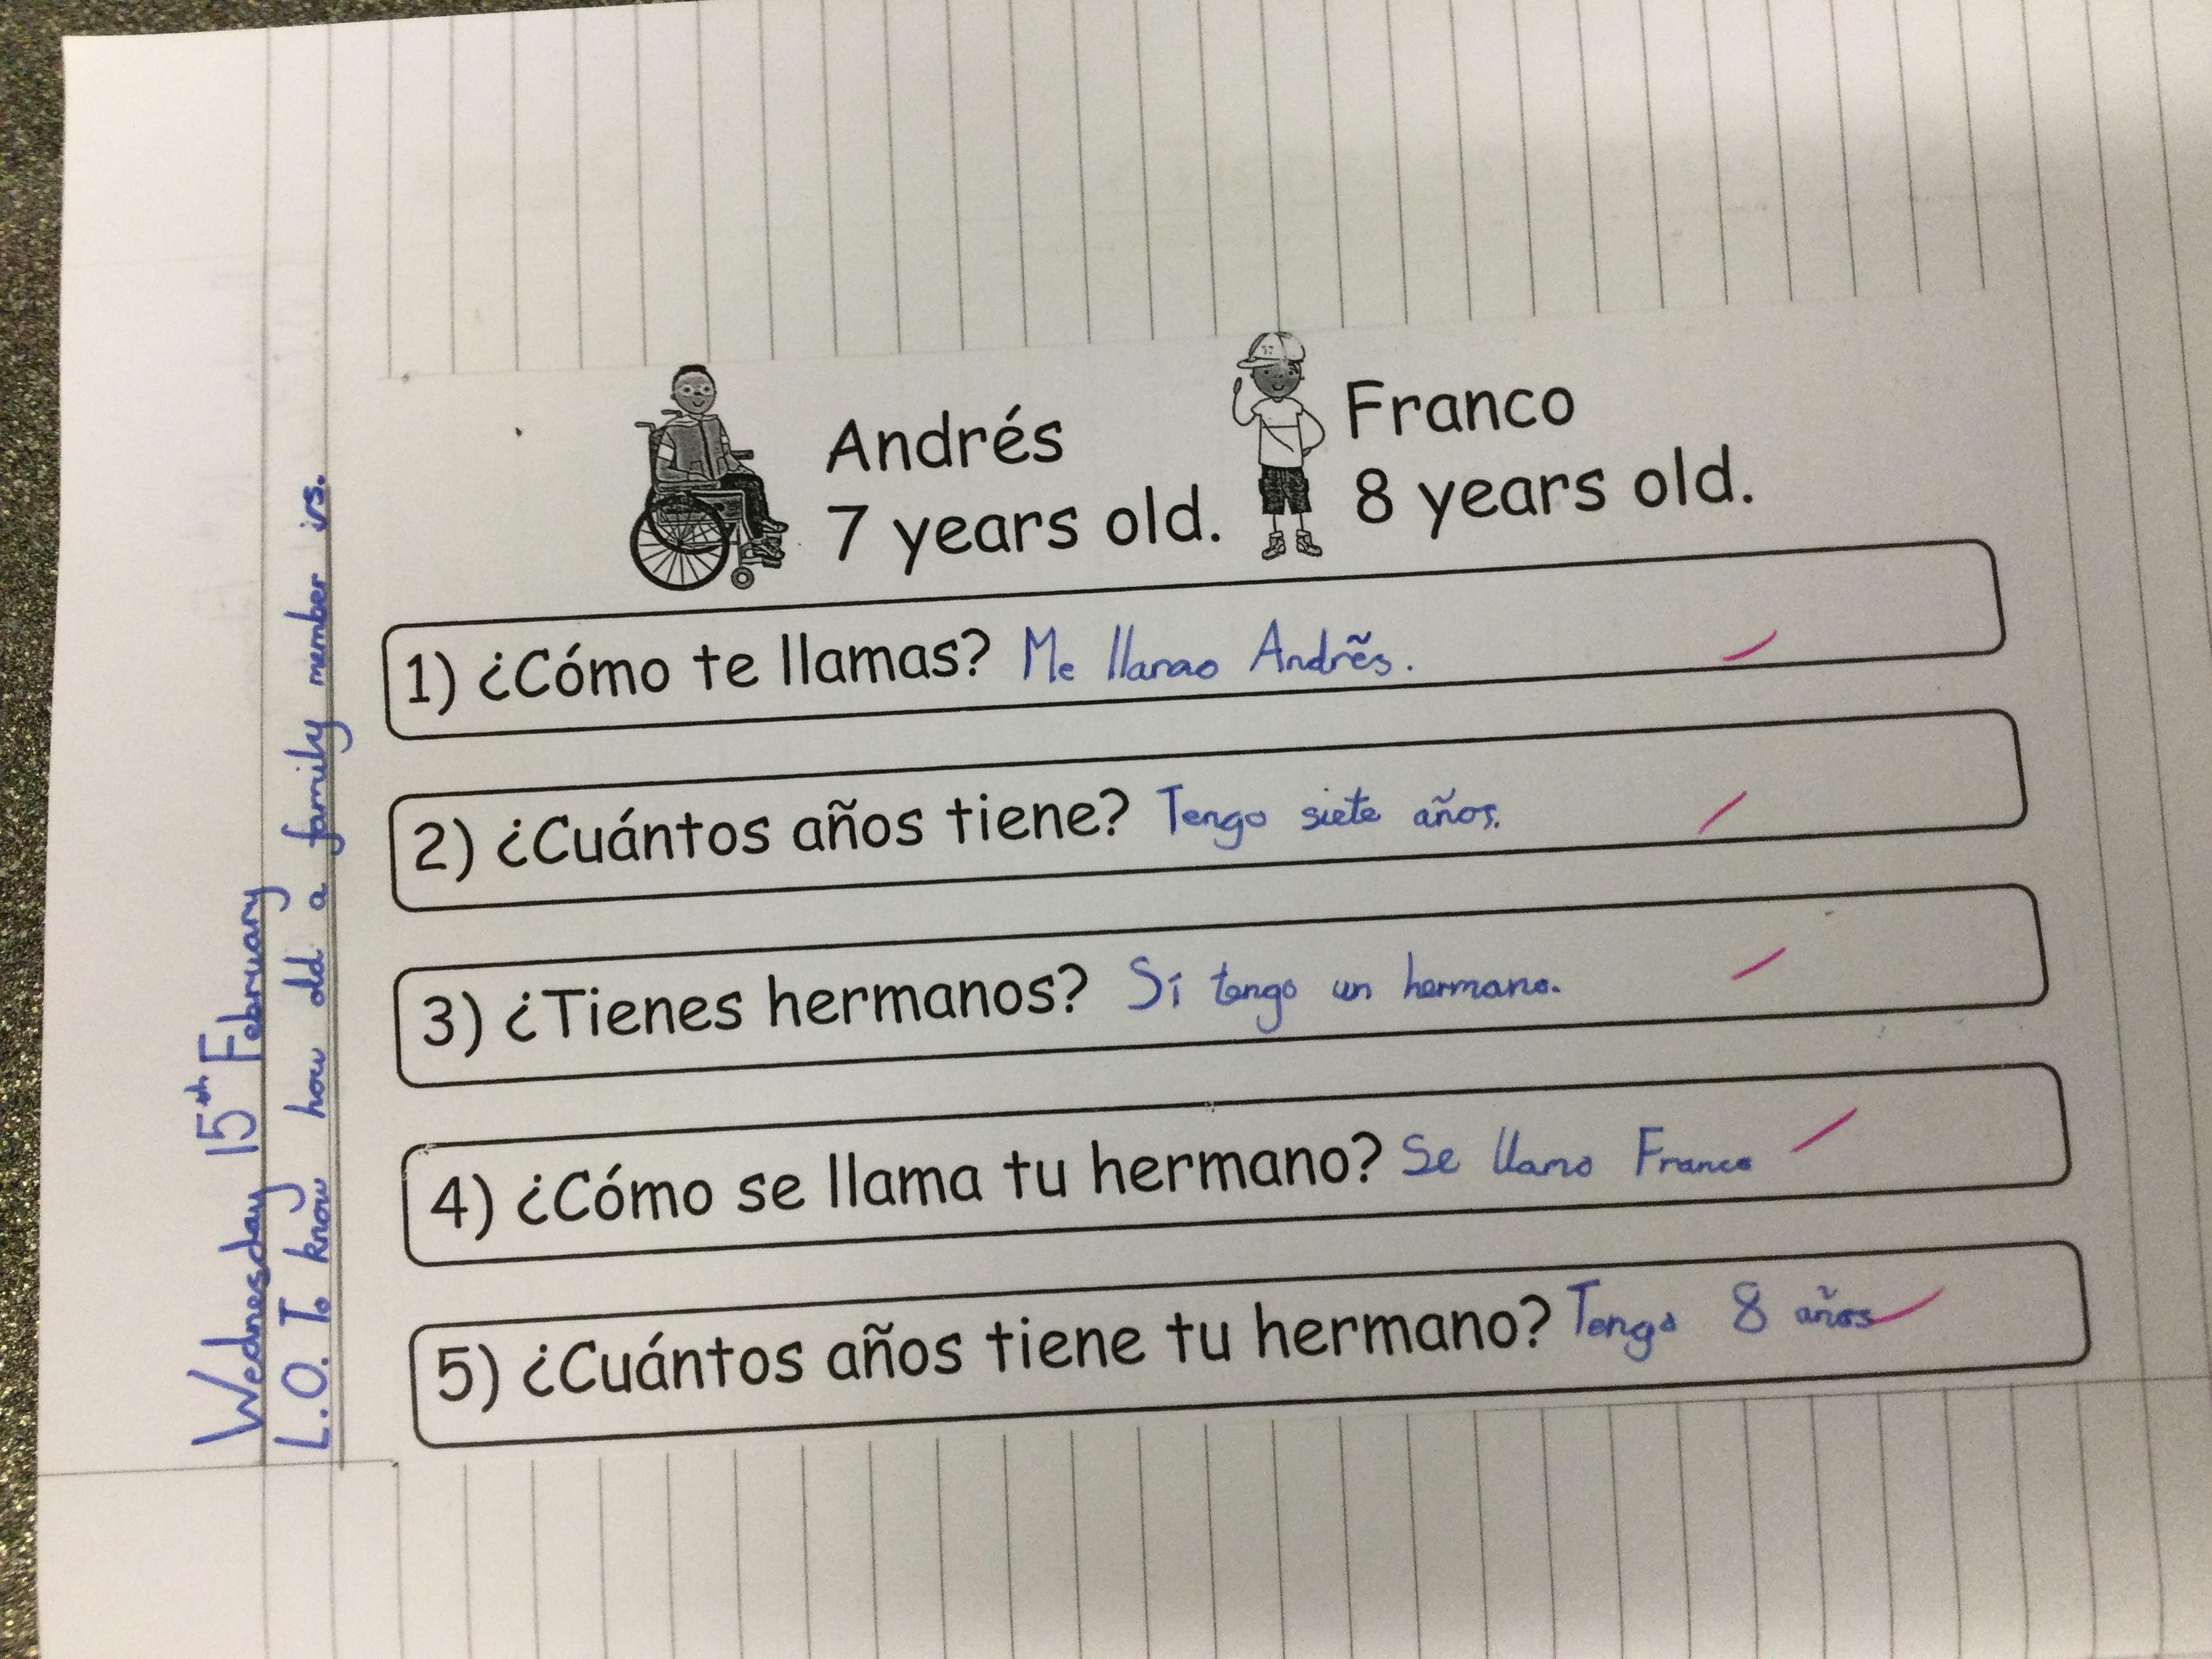 Wednesday 15th February
L.O. To know how old a family member is.
Andrés
7 years old.
Franco
8 years old.
1) ¿Cómo te llamas? Me llamo Andrẽs.
2) ¿Cuántos años tiene? Tengo siete años.
3) ¿Tienes hermanos? Sí tengo un hermano.
4) ¿Cómo se llama tu hermano? Se llamo Franco
5) ¿Cuántos años tiene tu hermano? Tengo 8 años